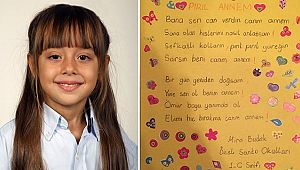 PIRIL ANNEM
Bana sen can verdin canım annem
Sana olan hislerimi nasıl anlatsam!
Şefkatli kolların, pırıl pırıl yüreğin
Sarsın beni canım annem!
Bir gün yeniden doğsam,
Yine sen ol benim annem!
Ömür boyu yanımda ol
Elimi hiç bırakma canım annem!
Mira Budak
Özel Sanko Okulları
1-C Sınıfı